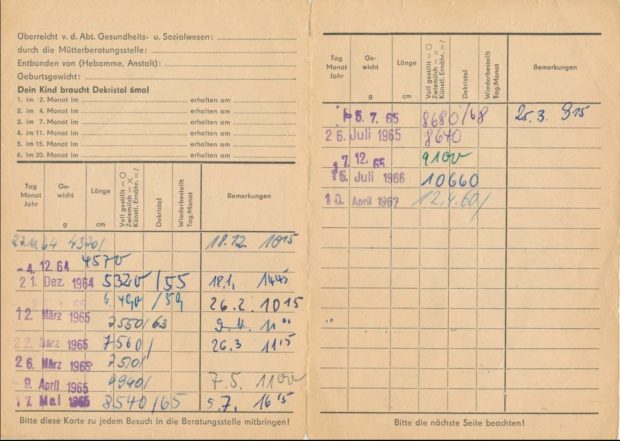 Überreicht v. d. Abt. Gesundheits- u. Sozialwesen:
durch die Mütterberatungsstelle:
Entbunden von (Hebamme, Anstalt):
Geburtsgewicht:
Dein Kind braucht Dekristol 6mal
1. im 2. Monat im erhalten am
2. im 4. Monat im erhalten am
3. im 7. Monat im erhalten am
4. im 11. Monat im erhalten am
5. im 15. Monat im erhalten am
6. im 20. Monat im erhalten am
Tag Monat Jahr Ge- wicht g Länge cm Voll gestillt = O Zwiemilch = X Künstl. Ernähr. = / Dekristol Wiederbestellt Tag/Monat Bemerkungen
27.11.64 4320/ 18.12 1015
-4. 12. 64 4570
21. Dez. 1964 5320/55 18.1. 1445
6.490/59 26.2. 1015
12. März 1965 7550/63
22. März 1965 7560/ 26.3 1115
26. März 1965
-9. April 1965 7.5. 1100
17. Mai 1965 8540/65 5.7. 1615
Bitte diese Karte zu jedem Besuch in die Beratungsstelle mitbringen!
Tag Monat Jahr Ge- wicht g Länge cm Voll gestillt = O Zwiemilch = X Künstl. Ernähr. = / Dekristol Wiederbestellt Tag/Monat Bemerkungen
5. 7. 65 8680/68 25.3. 915
26. Juli 1965 8640
12. 65 9100
15. Juli 1966 10660
10. April 1967
Bitte die nächste Seite beachten!